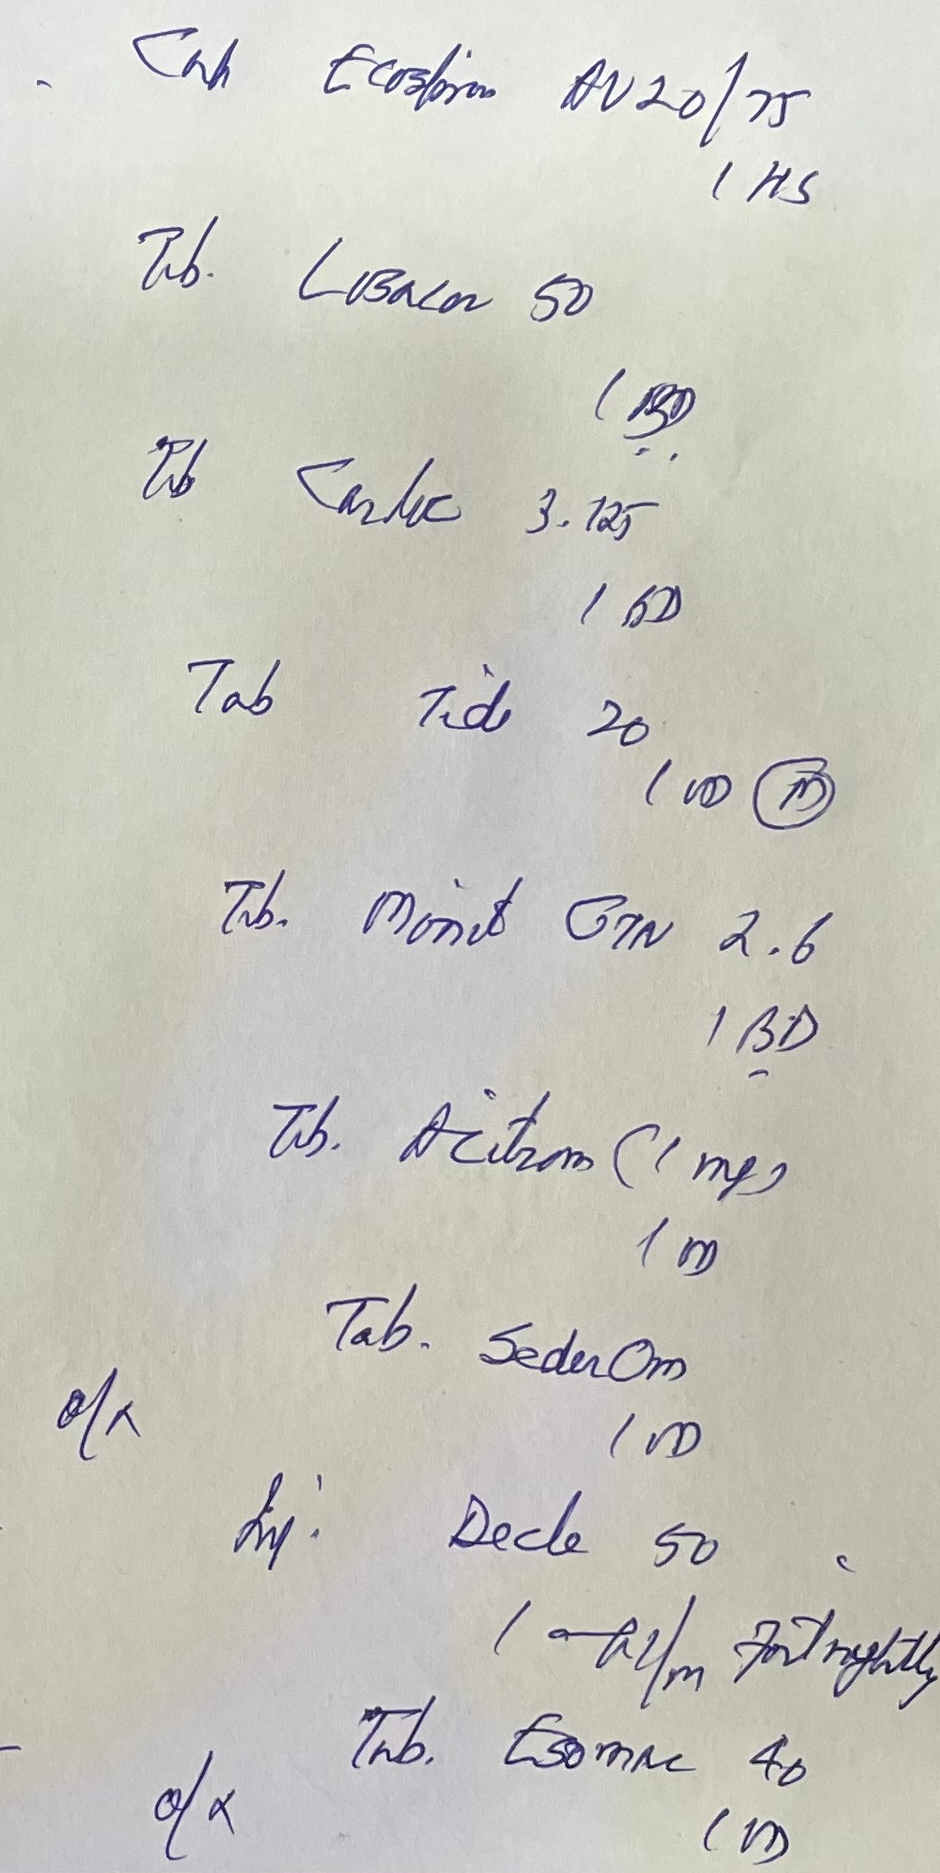 Cap Ecosprin AV 20/75
1 HS
Tab. LoBACOR 50
1 BD
Tab Carloc 3.125
1 BD
Tab Tide 20
1 OD (M)
Tab. Monit GTN 2.6
1 BD
Tab. Acitrom (1 mg)
1 OD
Tab. SederOm
o/x
1 OD
Inj. Deca 50
1 I/m Fortnightly
Tab. Esomac 40
o/x
1 OD